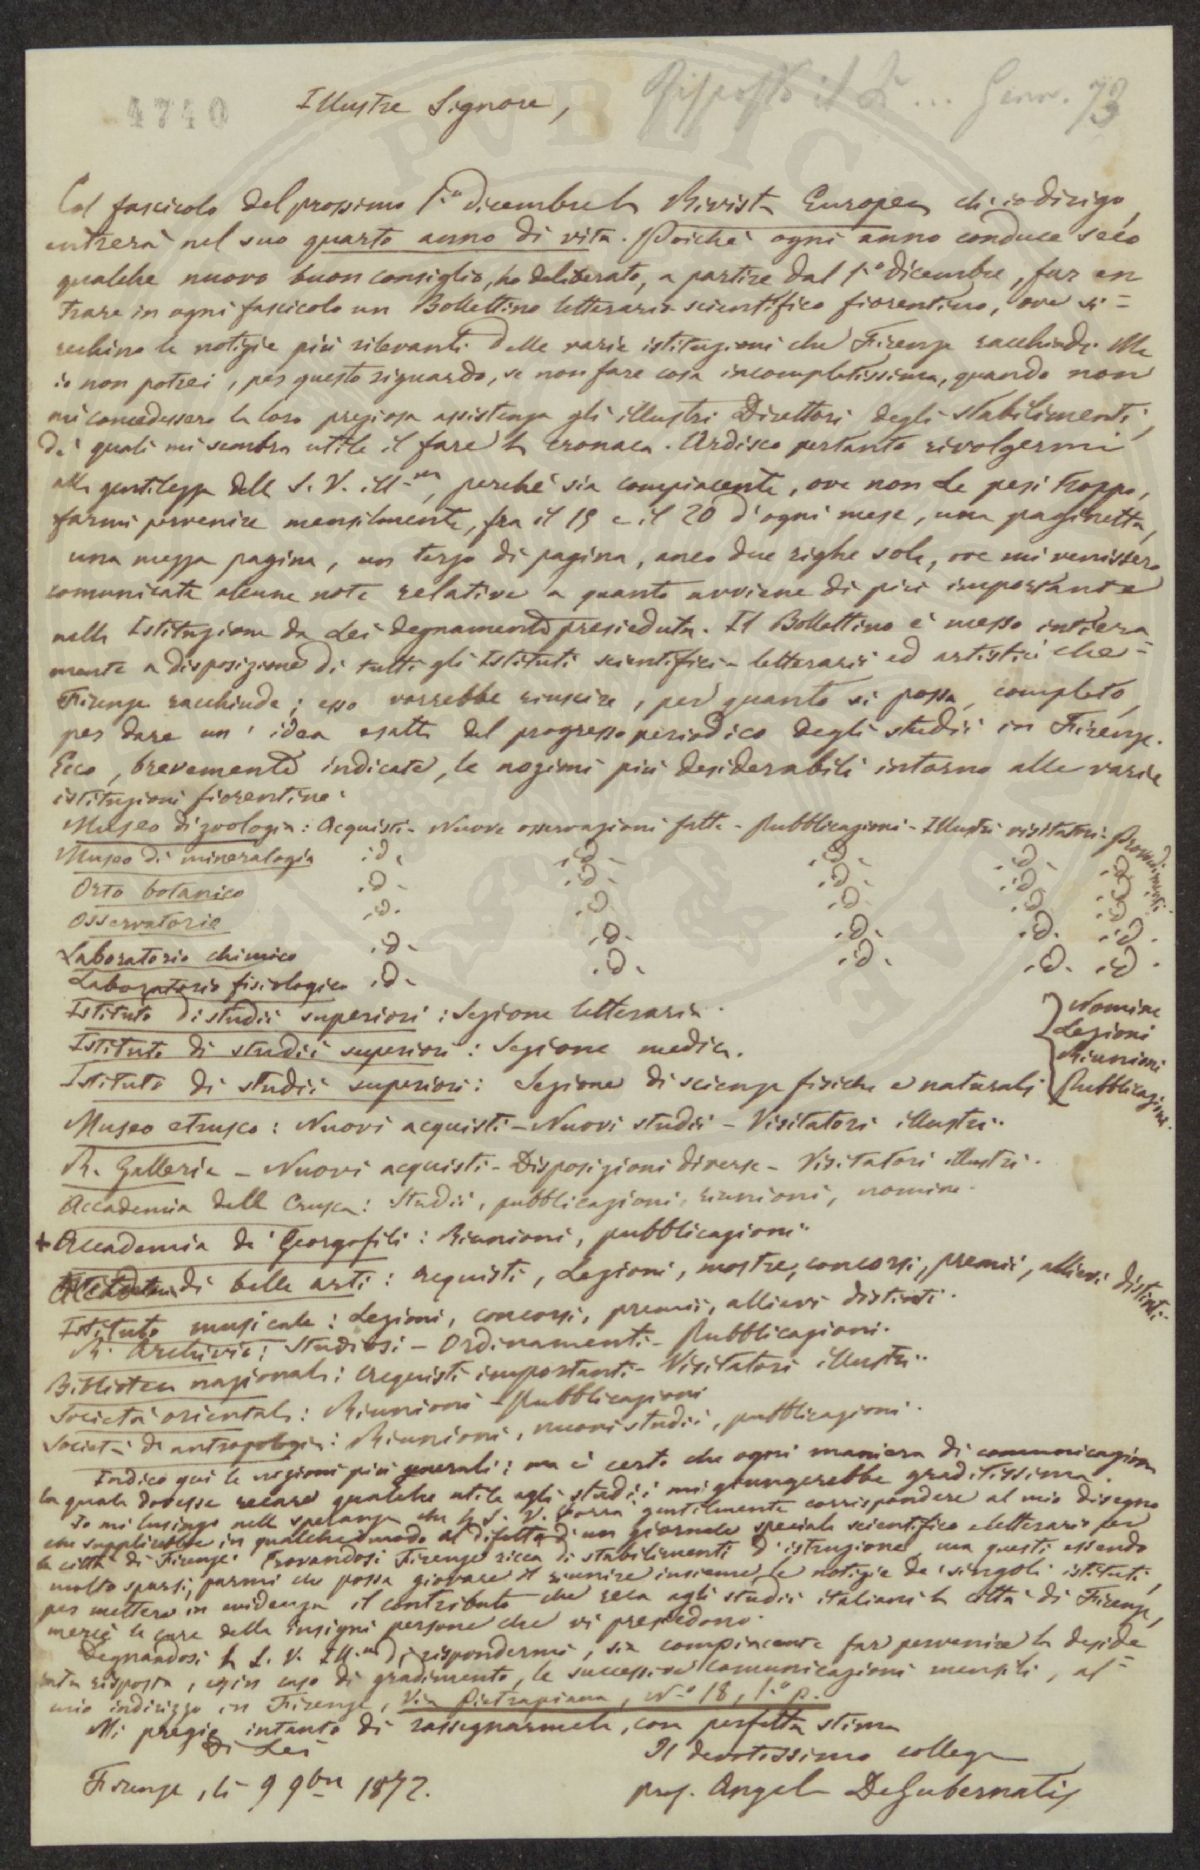 4740
Risposto il dì ... Genn. 73
Illustre Signore,
Col fascicolo del prossimo 1.º dicembre la Rivista Europea ch' io dirigo,
entrerà nel suo quarto anno di vita. Poiché ogni anno conduce seco
qualche nuovo buon consiglio, ho deliberato, a partire dal 1.º dicembre, far en
trare in ogni fascicolo un Bollettino letterario scientifico fiorentino, ove si=
rechino le notizie più rilevanti delle varie istituzioni che Firenze racchiude. Ma
io non potrei, per questo riguardo, se non fare cosa incompletissima, quando non
mi concedessero la loro preziosa assistenza gli illustri Direttori degli stabilimenti,
de' quali mi sembra utile il fare la cronaca. Ardisco pertanto rivolgermi
alla gentilezza della S. V. Ill.ma, perché sia compiacente, ove non Le pesi troppo,
farmi pervenire mensilmente, fra il 15 e il 20 d'ogni mese, una paginetta,
una mezza pagina, un terzo di pagina, anco due righe sole, ove mi venissero
comunicate alcune note relative a quanto avviene di più importante
nella Istituzione da Lei degnamente presieduta. Il Bollettino è messo intiera=
mente a disposizione di tutti gli Istituti scientifici-letterarii ed artistici che=
Firenze racchiude; esso vorrebbe riuscire, per quanto si possa, completo,
per dare un' idea esatta del progresso periodico degli studii in Firenze.
Ecco, brevemente indicate, le nozioni più desiderabili intorno alle varie
istituzioni fiorentine:
Museo di zoologia: Acquisti - Nuove osservazioni fatte - Pubblicazioni - Illustri visitatori - Provvedimenti.
Museo di mineralogia id. id. id. id. id.
Orto botanico id. id. id. id. id.
Osservatorio id. id. id. id. id.
Laboratorio chimico id. id. id. id. id.
Laboratorio fisiologico id. id. id. id. id.
Istituto di studii superiori: Sezione letteraria.
Istituto di studii superiori: Sezione medica.
Istituto di studii superiori: Sezione di scienze fisiche e naturali
Nomine
Lezioni
Riunioni
Pubblicazioni.
Museo etrusco: Nuovi acquisti - Nuovi studii - Visitatori illustri.
R. Gallerie - Nuovi acquisti - Disposizioni diverse - Visitatori illustri.
Accademia della Crusca: Studii, pubblicazioni, riunioni, nomine.
+ Accademia de' Georgofili: Riunioni, pubblicazioni.
di belle arti: acquisti, Lezioni, mostre, concorsi, premii, allievi distinti.
Istituto musicale: Lezioni, concorsi, premii, allievi distinti.
R. Archivio: Studiosi - Ordinamenti - Pubblicazioni.
Biblioteca nazionale: Acquisti importanti - Visitatori illustri.
Società orientale: Riunioni - Pubblicazioni
Società di antropologia: Riunioni, nuovi studii, pubblicazioni.
Indico qui le nozioni più generali; ma è certo che ogni maniera di comunicazione
la quale dovesse recare qualche utile agli studii mi giungerebbe graditissima.
Io mi lusingo nella speranza che la S. V. vorrà gentilmente corrispondere al mio disegno
che supplirebbe in qualche modo al difetto di un giornale speciale scientifico e letterario per
la città di Firenze. Trovandosi Firenze ricca di stabilimenti d' istruzione, ma questi essendo
molto sparsi, parmi che possa giovare il riunire insieme le notizie de' singoli istituti,
per mettere in evidenza il contributo che reca agli studii italiani la città di Firenze,
mercè le cure delle insigni persone che vi presiedono.
Degnandosi la S. V. Ill.ma di rispondermi, sia compiacente far pervenire la deside
rata risposta, e, in caso di gradimento, le successive comunicazioni mensili, al=
mio indirizzo in Firenze, Via Pietrapiana, N.º 18, 1.º p.
Mi pregio intanto di rassegnarmele, con perfetta stima
Di Lei
Il devotissimo collega
Firenze, li 9 9bre 1872.
prof. Angelo DeGubernatis